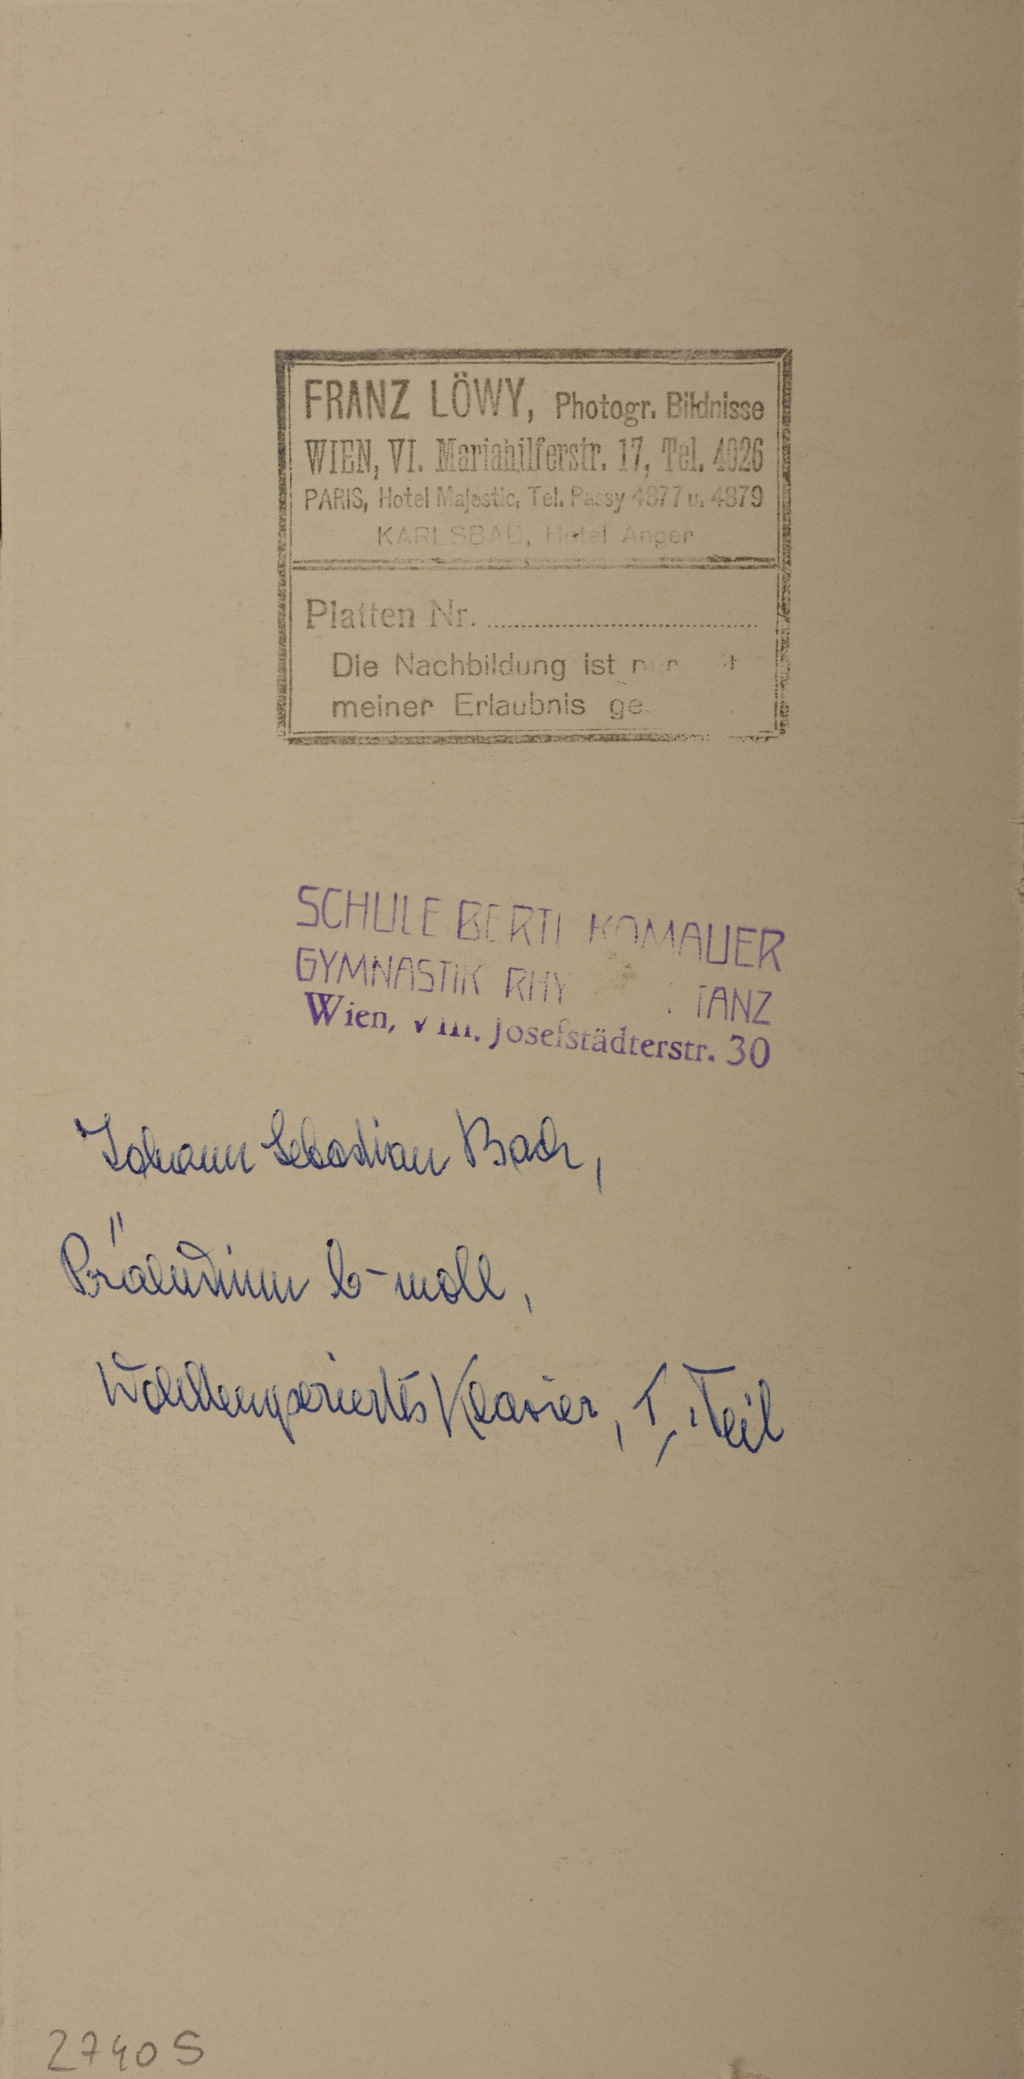 FRANZ LÖWY, Photogr. Bildnisse
WIEN, VI. Mariahilferstr. 17, Tel. 4026
PARIS, Hotel Majestic, Tel. Passy 4877 u. 4879
KARLSBAD, Hotel Anger
Platten Nr.
Die Nachbildung ist
meiner Erlaubnis
SCHULE BERTL KOMAUER
GYMNASTIK TANZ
Wien, VIII. Josefstädterstr. 30
Johann Sebastian Bach,
Präludium b-moll,
Wohltemperiertes Klavier, I, Teil
2740S